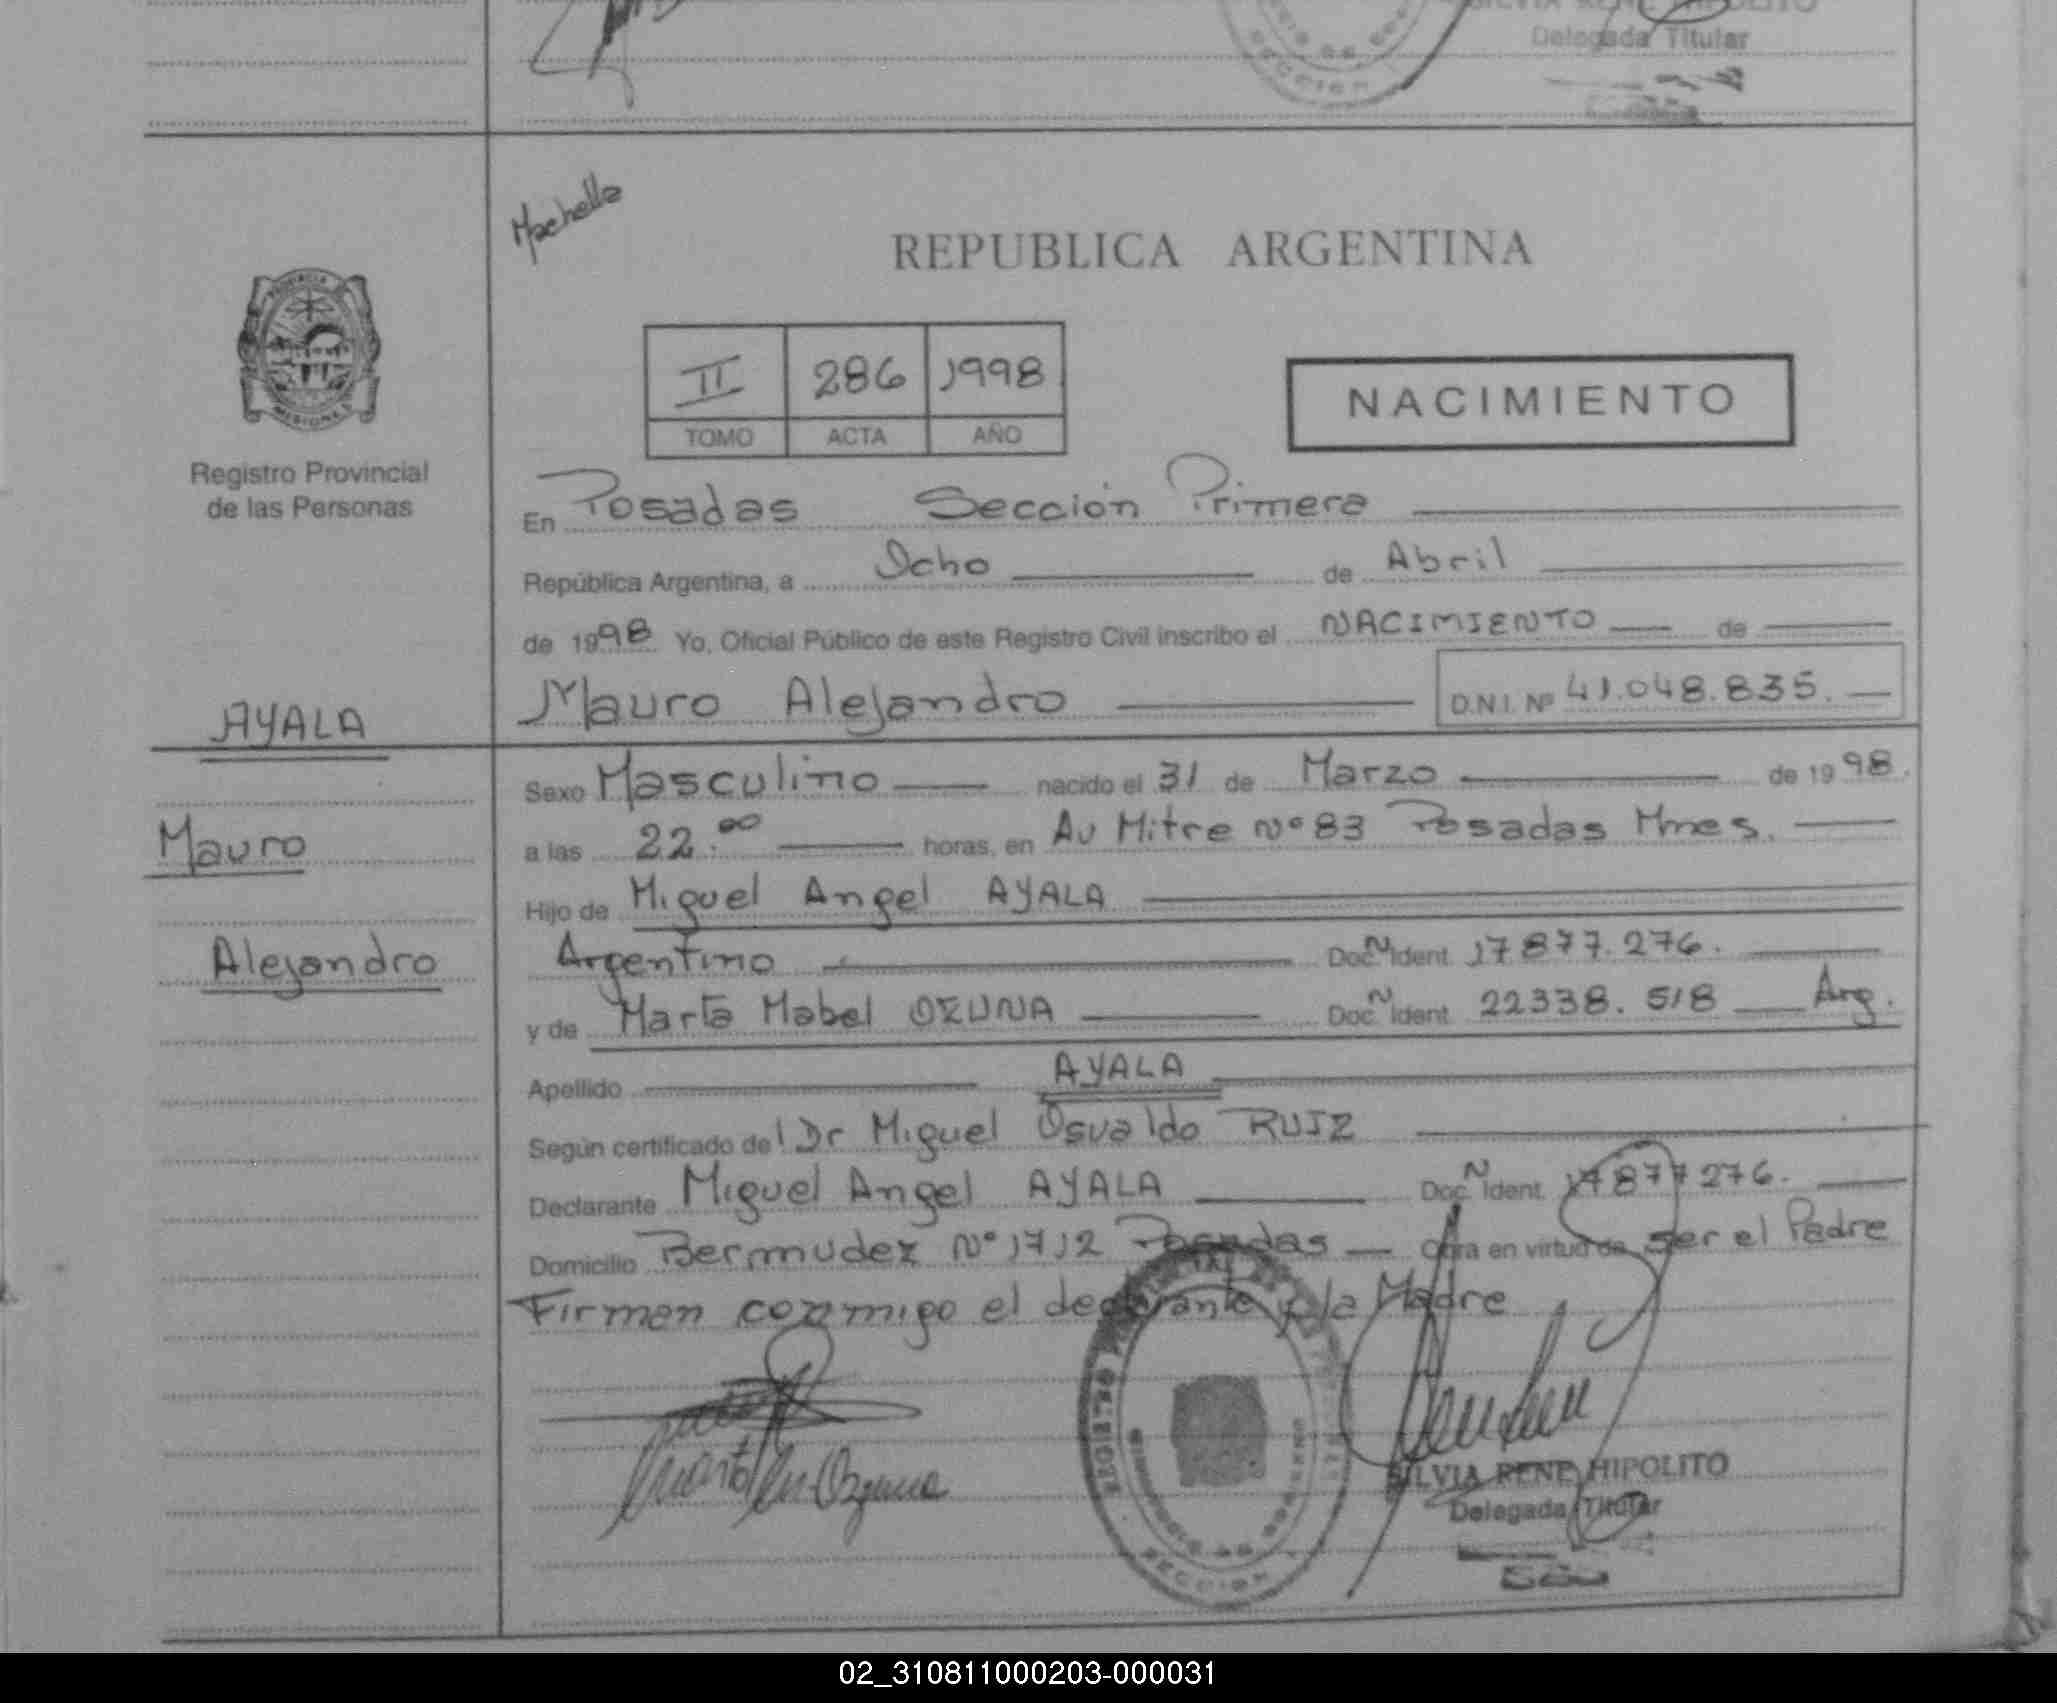 SILVIA RENE HIPOLITO
Delegada Titular
REPUBLICA ARGENTINA
II 286 1998
TOMO ACTA AÑO
NACIMIENTO
PROVINCIA
MISIONES
Registro Provincial
de las Personas
En Posadas Sección Primera
República Argentina, a Ocho de Abril
de 1998 Yo, Oficial Público de este Registro Civil inscribo el NACIMIENTO de
AYALA
Mauro Alejandro D.N.I. Nº 41.048.835.
Sexo Masculino nacido el 31 de Marzo de 1998.
Mauro
a las 22.00 horas, en Av Mitre Nº 83 Posadas Mnes.
Hijo de Miguel Angel AYALA
Alejandro
Argentino Doc. N Ident. 17877.276.
y de Marta Mabel OZUNA Doc. N Ident. 22338.518 Arg.
Apellido AYALA
Según certificado del Dr Miguel Osvaldo RUIZ
Declarante Miguel Angel AYALA Doc. N Ident. 17877276.
Domicilio Bermudez Nº 1712 Posadas Obra en virtud de ser el Padre
Firman conmigo el declarante y la Madre
SECCION
SILVIA RENE HIPOLITO
Delegada Titular
02_310811000203-000031